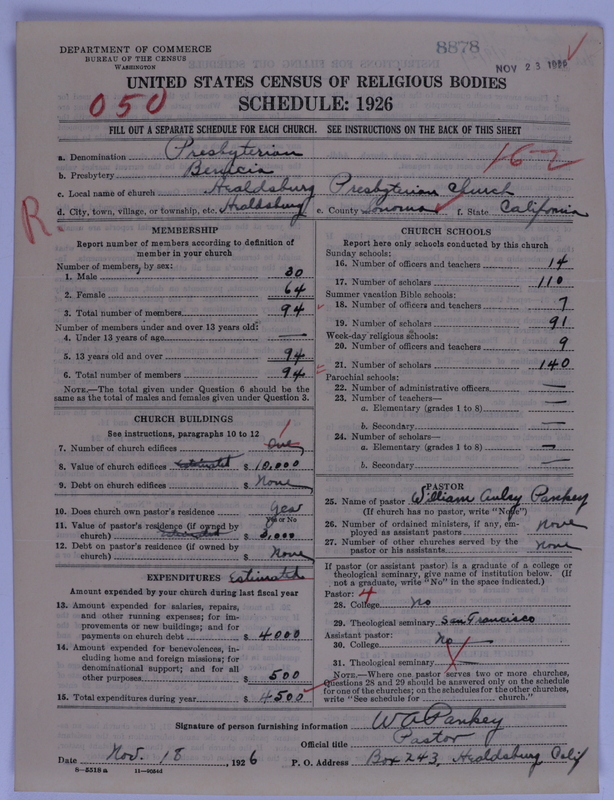 DEPARTMENT OF COMMERCE
BUREAU OF THE CENSUS
WASHINGTON
8878
NOV 23 1926
UNITED STATES CENSUS OF RELIGIOUS BODIES
SCHEDULE: 1926
050
FILL OUT A SEPARATE SCHEDULE FOR EACH CHURCH. SEE INSTRUCTIONS ON THE BACK OF THIS SHEET
162
R.
a. Denomination Presbyterian
b. Presbytery Benicia
c. Local name of church Healdsburg Presbyterian Church
d. City, town, village, or township, etc. Healdsburg e. County Sonoma f. State California
MEMBERSHIP
Report number of members according to definition of
member in your church
Number of members, by sex:
1. Male 30
2. Female 64
3. Total number of members 94
Number of members under and over 13 years old:
4. Under 13 years of age —
5. 13 years old and over 94
6. Total number of members 94
NOTE.—The total given under Question 6 should be the
same as the total of males and females given under Question 3.
CHURCH BUILDINGS
See instructions, paragraphs 10 to 12
7. Number of church edifices One
8. Value of church edifices Estimated $ 10,000
9. Debt on church edifices $ None
10. Does church own pastor's residence Yes
Yes or No
11. Value of pastor's residence (if owned by
church) Estimated $ 3,000
12. Debt on pastor's residence (if owned by
church) $ None
EXPENDITURES Estimated
Amount expended by your church during last fiscal year
13. Amount expended for salaries, repairs,
and other running expenses; for im-
provements or new buildings; and for
payments on church debt $ 4000
14. Amount expended for benevolences, in-
cluding home and foreign missions; for
denominational support; and for all
other purposes $ 500
15. Total expenditures during year $ 4500
CHURCH SCHOOLS
Report here only schools conducted by this church
Sunday schools:
16. Number of officers and teachers 14
17. Number of scholars 110
Summer vacation Bible schools:
18. Number of officers and teachers 7
19. Number of scholars 91
Week-day religious schools:
20. Number of officers and teachers 9
21. Number of scholars 140
Parochial schools:
22. Number of administrative officers —
23. Number of teachers—
a. Elementary (grades 1 to 8) —
b. Secondary —
24. Number of scholars—
a. Elementary (grades 1 to 8) —
b. Secondary —
PASTOR
25. Name of pastor William Aulay Pankey
(If church has no pastor, write "No")
26. Number of ordained ministers, if any, em-
ployed as assistant pastors None
27. Number of other churches served by the
pastor or his assistants None
If pastor (or assistant pastor) is a graduate of a college or
theological seminary, give name of institution below. (If
not a graduate, write "No" in the space indicated.)
Pastor: 4
28. College No
29. Theological seminary San Francisco
Assistant pastor:
30. College No
31. Theological seminary —
NOTE.—Where one pastor serves two or more churches,
Questions 28 and 29 should be answered only on the schedule
for one of the churches; on the schedules for the other churches,
write "See schedule for ______ church."
Signature of person furnishing information W A Pankey
Official title Pastor
Date Nov. 18, 1926 P. O. Address Box 243, Healdsburg Calif
8—5518 a 11—9084d